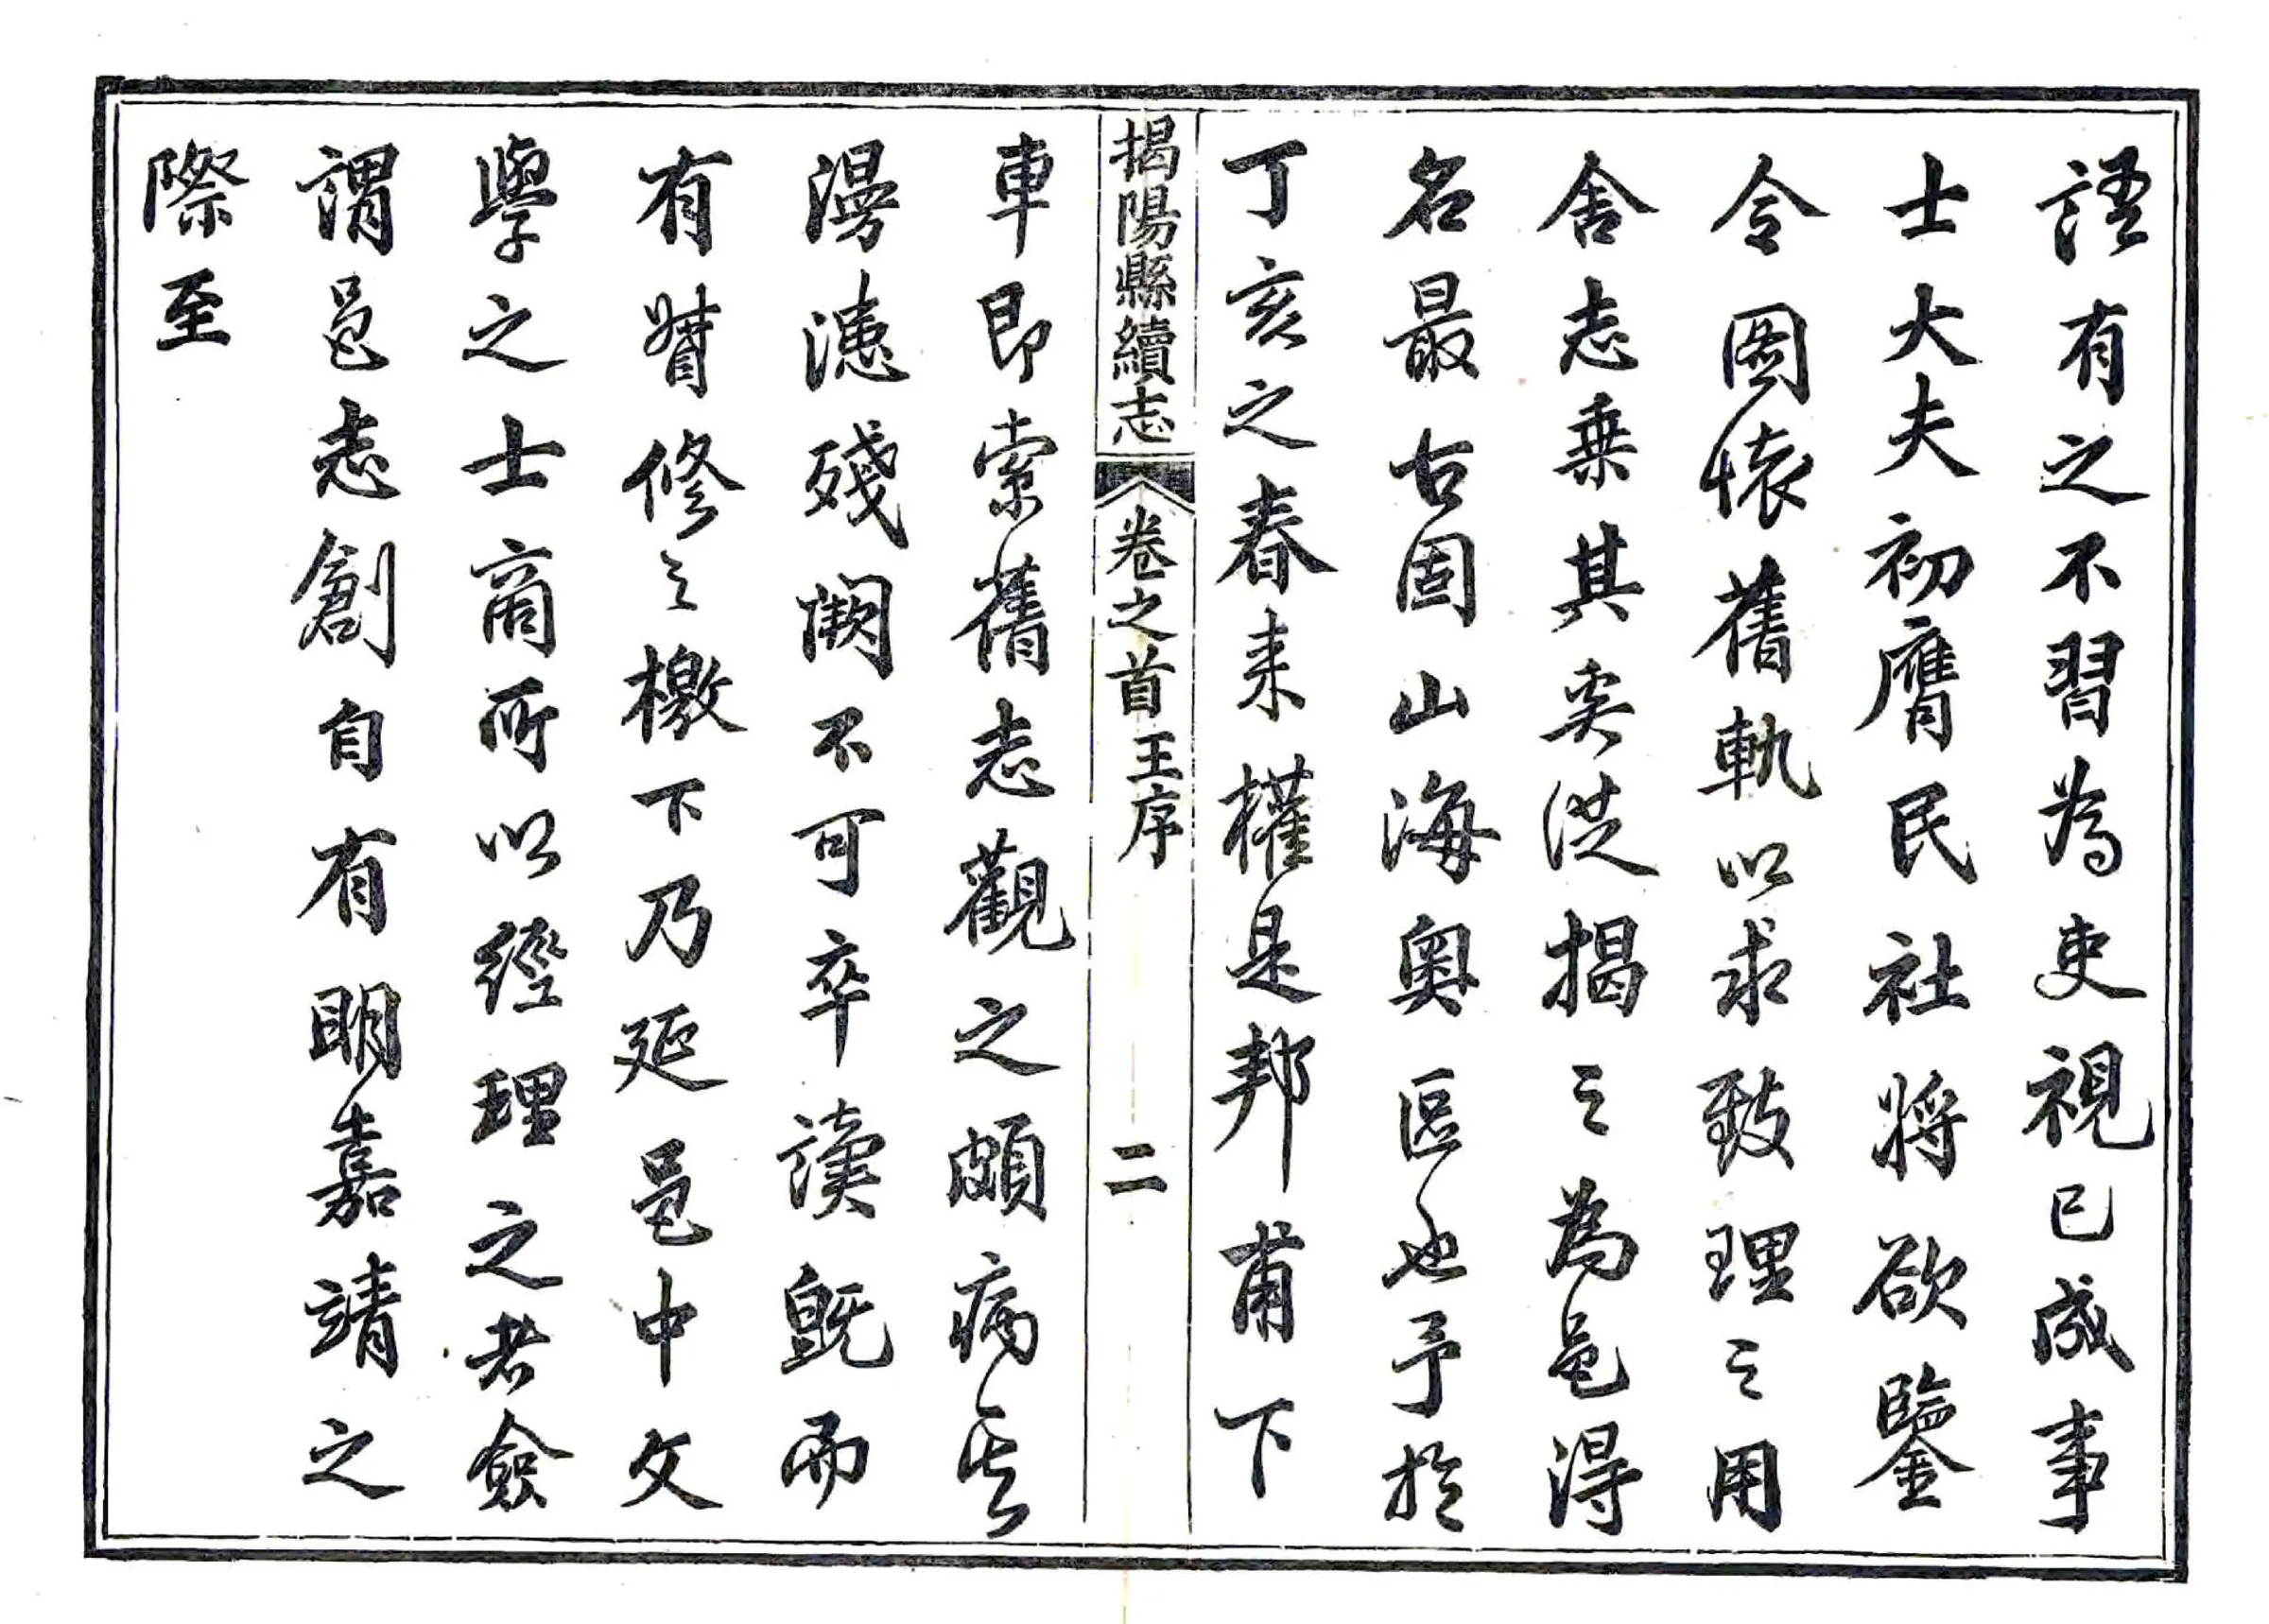 語有之不習為吏視已成事
士大夫初膺民社將欲鑒
今圖懷舊軌以求致理之用
舍志乗其奚從揭之為邑得
名最古固山海奧區也予於
丁亥之春來權是邦甫下
揭陽縣續志 卷之首 王序 二
車即索舊志觀之頗病其
漫漶殘闕不可卒讀既而
有賛修之檄下乃延邑中文
學之士商所以經理之者僉
謂邑志創自有明嘉靖之
際至